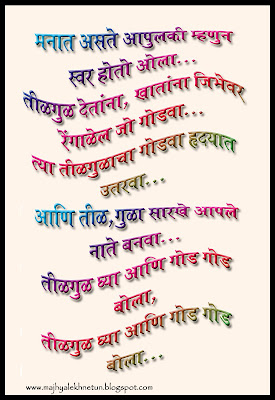 मनात असते आपुलकी म्हणुन
स्वर होतो ओला...
तीळगुळ देतांना, खातांना जिभेवर
रेंगाळेल जो गोडवा...
त्या तीळगुळाचा गोडवा हृदयात
उतरवा...
आणि तीळ,गुळा सारखे आपले
नाते बनवा...
तीळगुळ ध्या आणि गोड गोड
बोला,
तीळगुळ ध्या आणि गोड गोड
बोला...
www.majhyalekhnetun.blogspot.com